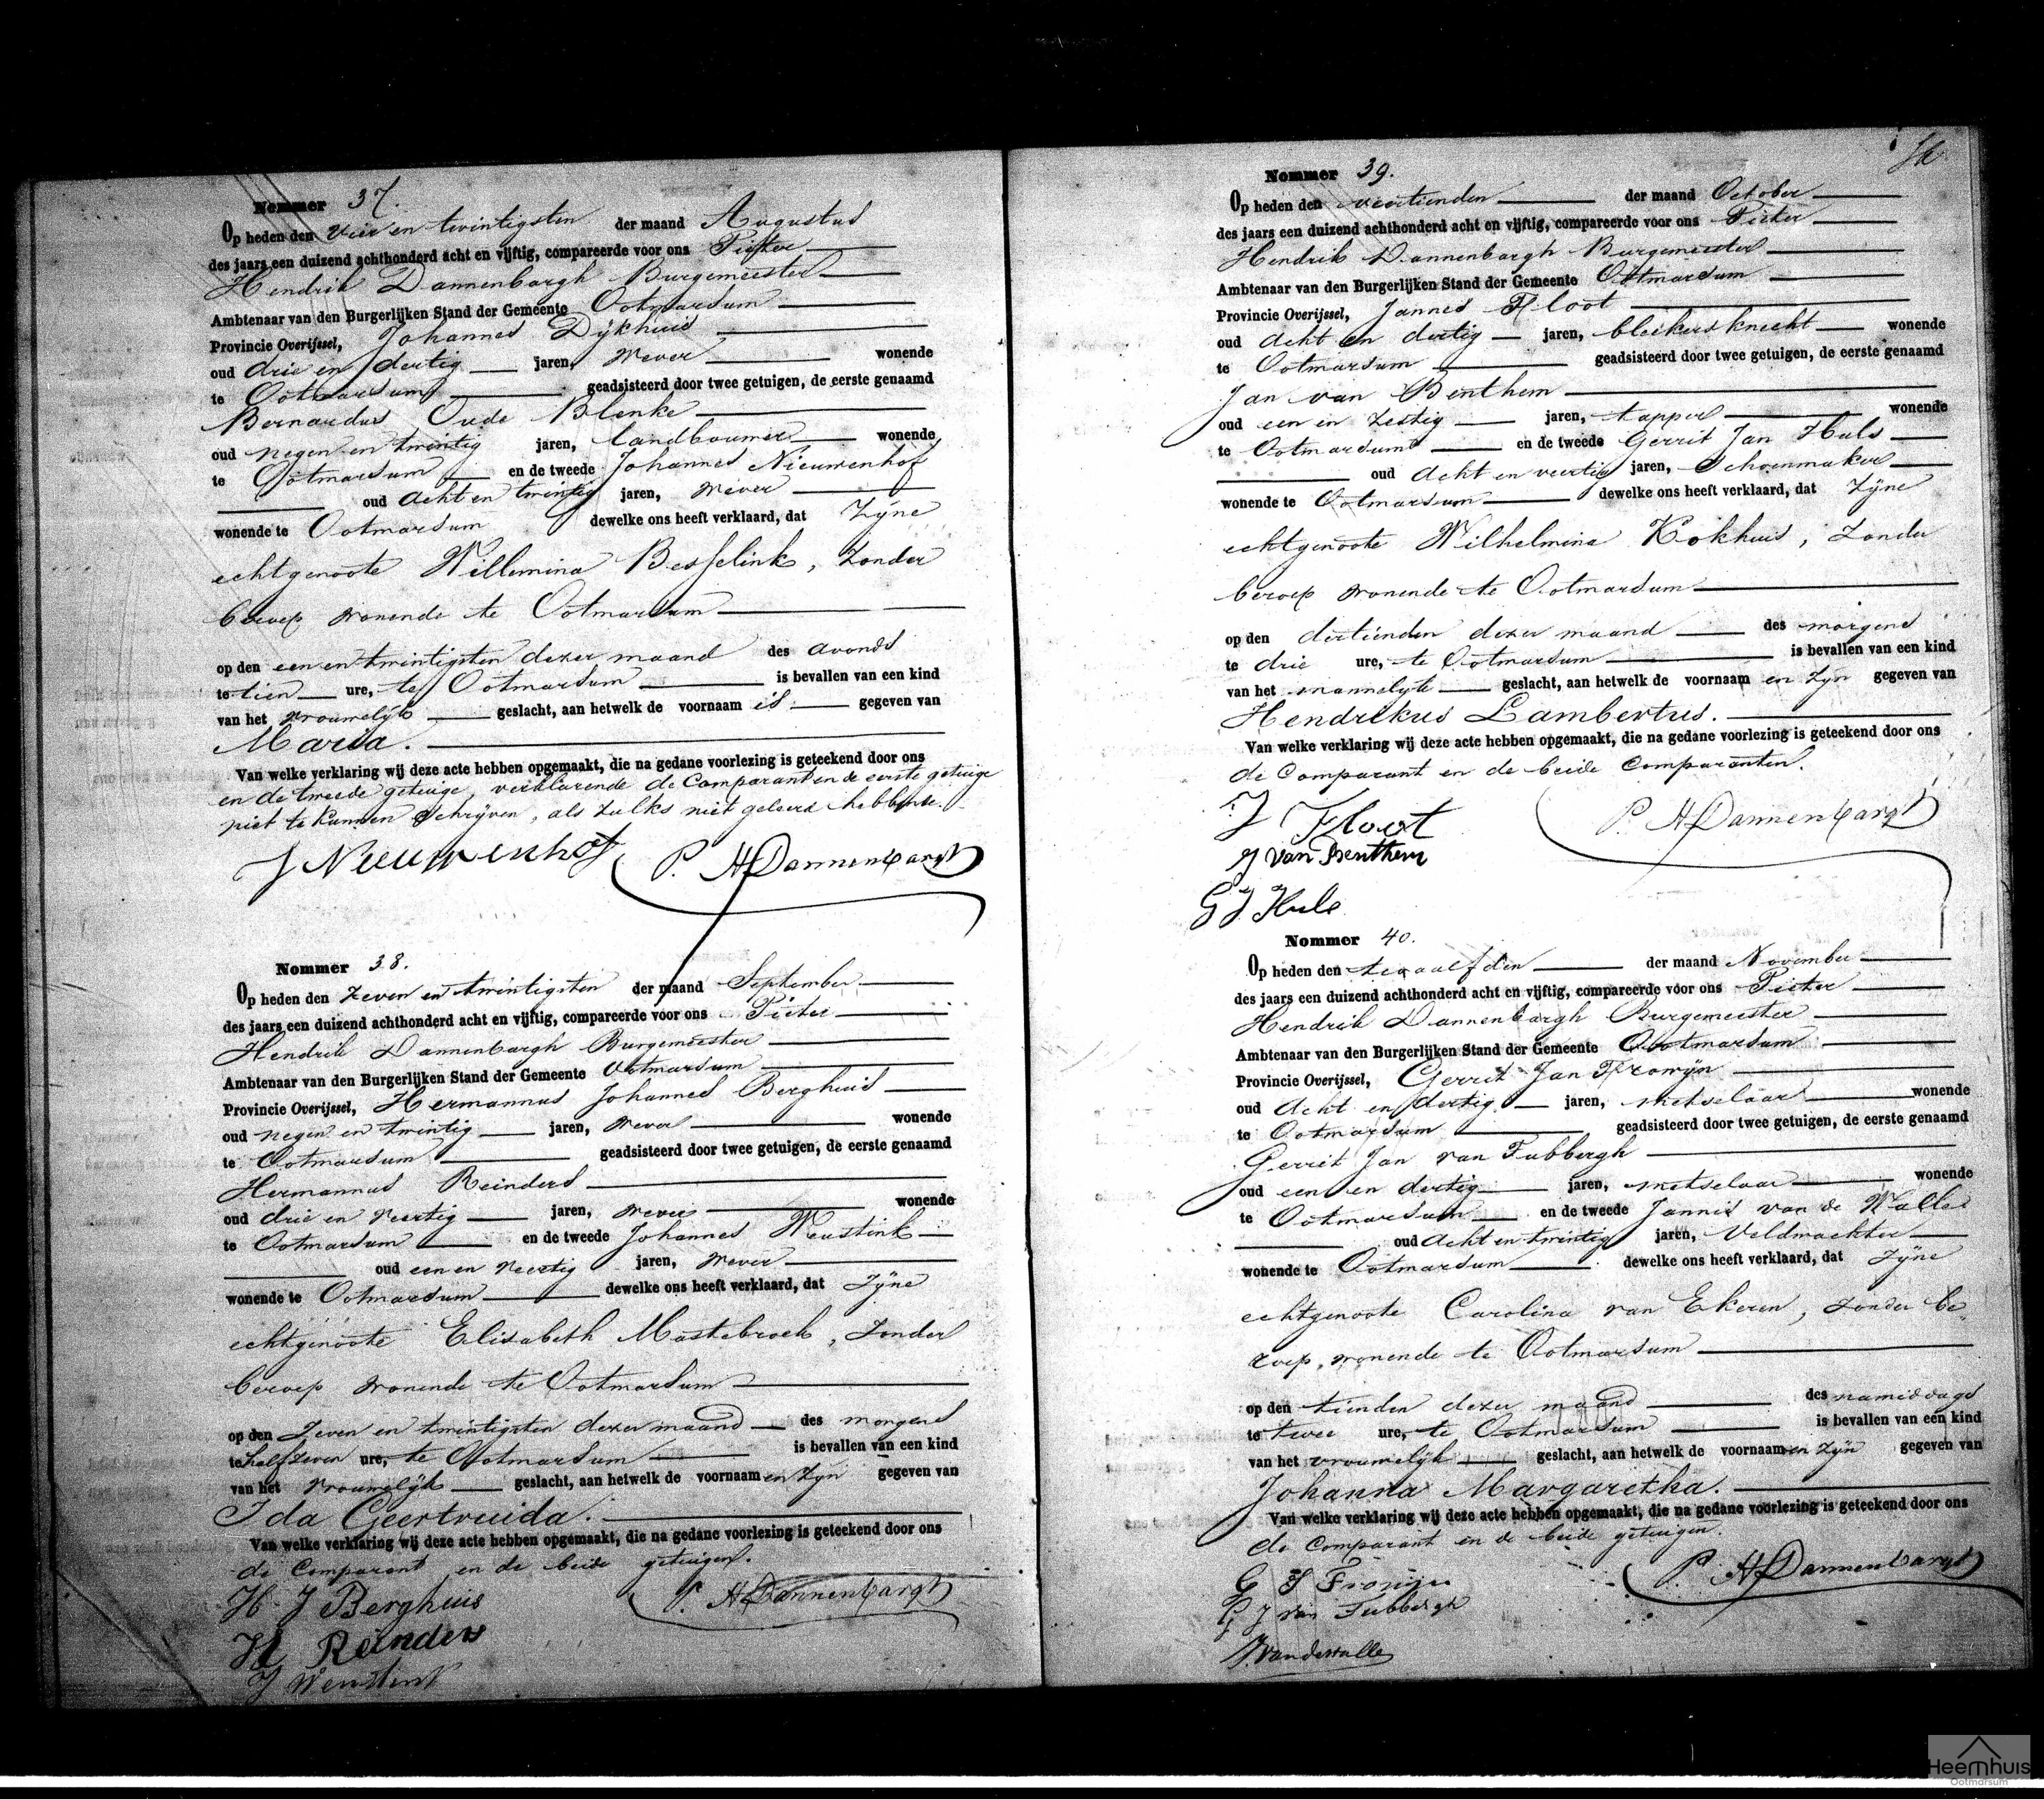 Nommer 37.
Op heden den vier en twintigsten der maand Augustus
des jaars een duizend achthonderd acht en vijftig, compareerde voor ons Pieter
Hendrik Dannenbargh Burgemeester
Ambtenaar van den Burgerlijken Stand der Gemeente Ootmarsum
Provincie Overijssel, Johannes Dijkhuis
oud drie en dertig jaren, wever wonende
te Ootmarsum geadsisteerd door twee getuigen, de eerste genaamd
Bernardus Oude Blenke
oud negen en twintig jaren, landbouwer wonende
te Ootmarsum en de tweede Johannes Nieuwenhof
oud acht en twintig jaren, wever
wonende te Ootmarsum dewelke ons heeft verklaard, dat zijne
echtgenoote Willemina Besselink, zonder
beroep wonende te Ootmarsum
op den een en twintigsten dezer maand des avonds
te tien ure, te Ootmarsum is bevallen van een kind
van het vrouwelijk geslacht, aan hetwelk de voornaam is gegeven van
Maria.
Van welke verklaring wij deze acte hebben opgemaakt, die na gedane voorlezing is geteekend door ons
en de tweede getuige, verklarende de Comparant en de eerste getuige
niet te kunnen schrijven, als zulks niet geleerd hebbende.
J Nieuwenhof P. H Dannenbargh
Nommer 38.
Op heden den zeven en twintigsten der maand September
des jaars een duizend achthonderd acht en vijftig, compareerde voor ons Pieter
Hendrik Dannenbargh Burgemeester
Ambtenaar van den Burgerlijken Stand der Gemeente Ootmarsum
Provincie Overijssel, Hermannus Johannes Berghuis
oud negen en twintig jaren, wever wonende
te Ootmarsum geadsisteerd door twee getuigen, de eerste genaamd
Hermannus Reinders
oud drie en veertig jaren, wever wonende
te Ootmarsum en de tweede Johannes Weustink
oud een en veertig jaren, wever
wonende te Ootmarsum dewelke ons heeft verklaard, dat zijne
echtgenoote Elisabeth Mastebroek, zonder
beroep wonende te Ootmarsum
op den zeven en twintigsten dezer maand des morgens
te half zeven ure, te Ootmarsum is bevallen van een kind
van het vrouwelijk geslacht, aan hetwelk de voornaam en zijn gegeven van
Ida Geertruida.
Van welke verklaring wij deze acte hebben opgemaakt, die na gedane voorlezing is geteekend door ons
de Comparant en de beide getuigen.
H. J Berghuis P. H Dannenbargh
H Reinders
J Weustink
Nommer 39.
Op heden den veertienden der maand October
des jaars een duizend achthonderd acht en vijftig, compareerde voor ons Pieter
Hendrik Dannenbargh Burgemeester
Ambtenaar van den Burgerlijken Stand der Gemeente Ootmarsum
Provincie Overijssel, Jannes Floot
oud acht en dertig jaren, bleekersknecht wonende
te Ootmarsum geadsisteerd door twee getuigen, de eerste genaamd
Jan van Benthem
oud een en zestig jaren, tapper wonende
te Ootmarsum en de tweede Gerrit Jan Huls
oud acht en veertig jaren, schoenmaker
wonende te Ootmarsum dewelke ons heeft verklaard, dat zijne
echtgenoote Wilhelmina Kokhuis, zonder
beroep wonende te Ootmarsum
op den dertienden dezer maand des morgens
te drie ure, te Ootmarsum is bevallen van een kind
van het mannelijk geslacht, aan hetwelk de voornaam en zijn gegeven van
Hendrikus Lambertus.
Van welke verklaring wij deze acte hebben opgemaakt, die na gedane voorlezing is geteekend door ons
de Comparant en de beide Comparanten.
J Floot P. H Dannenbargh
J van Benthem
G J Huls
Nommer 40.
Op heden den twaalfden der maand November
des jaars een duizend achthonderd acht en vijftig, compareerde voor ons Pieter
Hendrik Dannenbargh Burgemeester
Ambtenaar van den Burgerlijken Stand der Gemeente Ootmarsum
Provincie Overijssel, Gerrit Jan Frowijn
oud acht en dertig jaren, metselaar wonende
te Ootmarsum geadsisteerd door twee getuigen, de eerste genaamd
Gerrit Jan van Tubbergh
oud een en dertig jaren, metselaar wonende
te Ootmarsum en de tweede Jannis van de Walle
oud acht en twintig jaren, Veldwachter
wonende te Ootmarsum dewelke ons heeft verklaard, dat zijne
echtgenoote Carolina van Ekeren, zonder be
roep, wonende te Ootmarsum
op den tienden dezer maand des namiddags
te twee ure, te Ootmarsum is bevallen van een kind
van het vrouwelijk geslacht, aan hetwelk de voornaam en zijn gegeven van
Johanna Margaretha.
Van welke verklaring wij deze acte hebben opgemaakt, die na gedane voorlezing is geteekend door ons
de Comparant en de beide getuigen.
G J Fronijn P. H Dannenbargh
G J van Tubbergh
J. vandewalle
Heemhuis
Ootmarsum